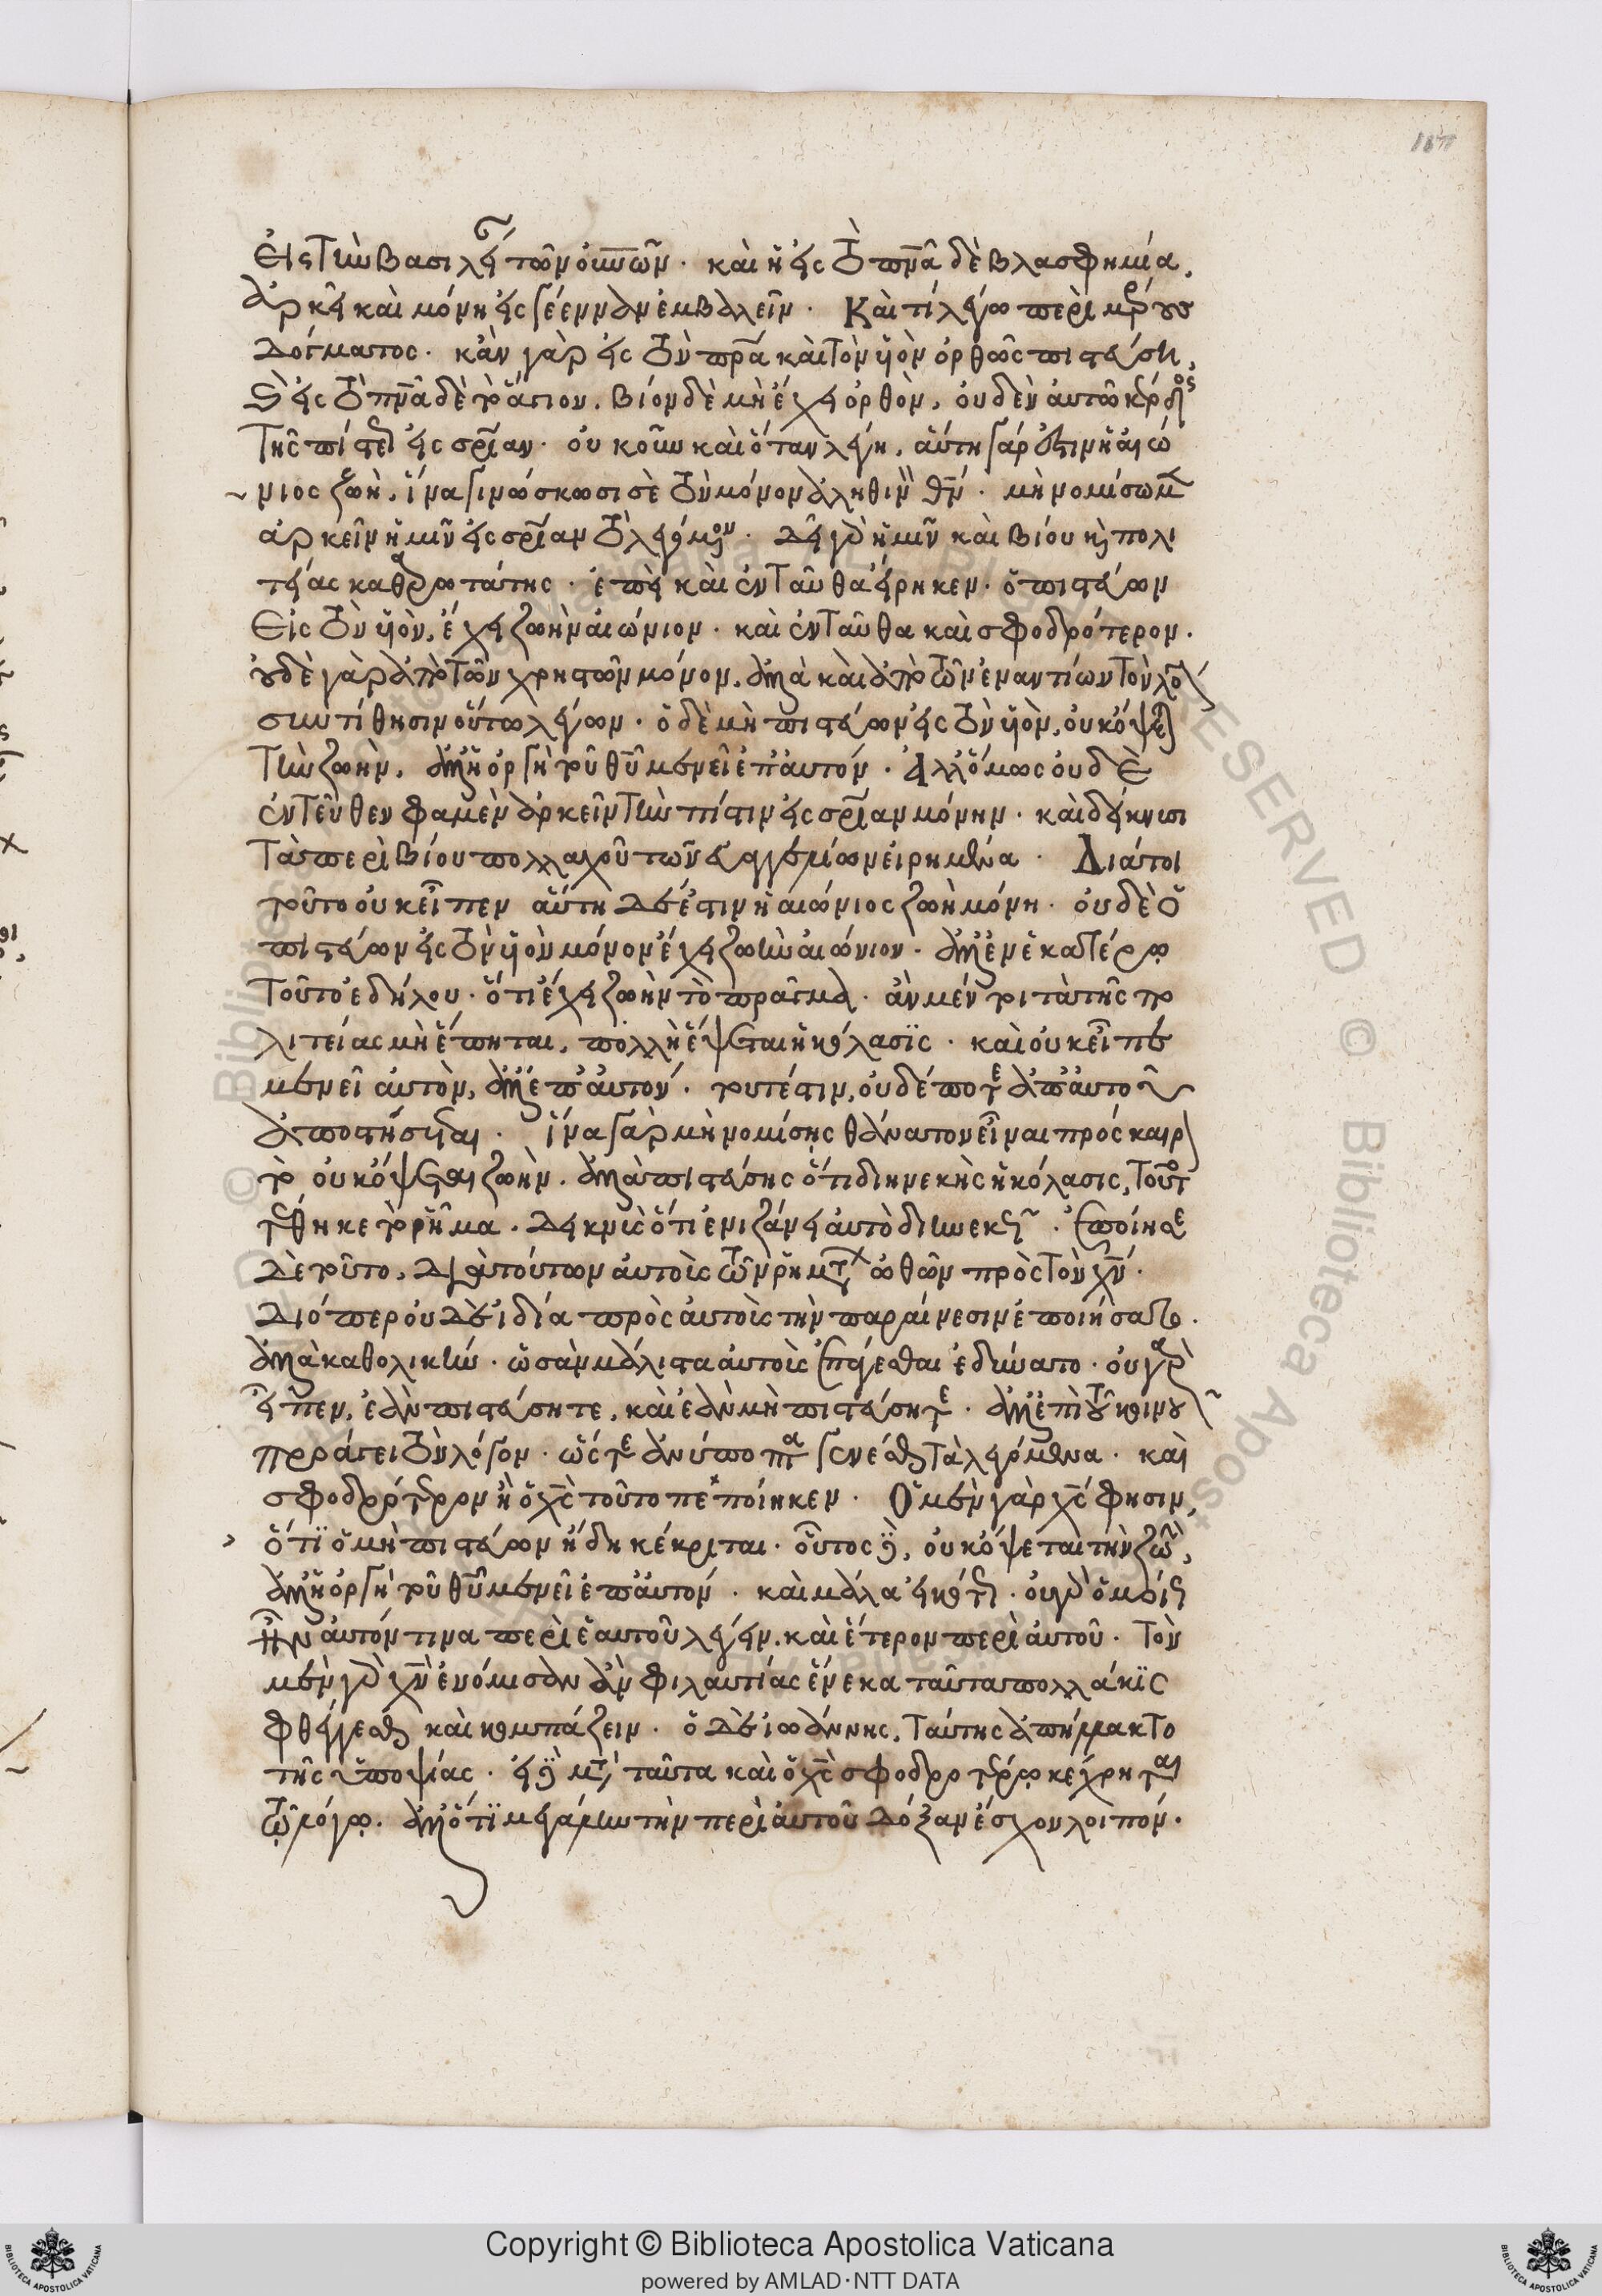 εἰς τὴν βασιλεί τῶν οὐνῶν· καὶ ἡ εἰς τὸ πνᾶ δὲ βλασφημία,
ἀρκεῖ καὶ μόνη εἰς γέενναν ἐμβαλεῖν· Καὶ τί λέγω περὶ μέρους
δόγματος· κἂν γὰρ εἰς τὸν πρα καὶ τὸν υἱὸν ὀρθῶς πιστεύση,
καὶ εἰς τὸ πνᾶ δὲ τὸ ἅγιον, βίον δὲ μὴ ἔχη ὀρθὸν, οὐδὲν αὐτῶ κέρδος
τῆς πίστεως εἰς σρίαν· οὐκοῦν καὶ ὅταν λέγη, αὕτη γάρ ἐστιν ἡ αἰώ
νιος ζωὴ, ἵνα γινώσκωσι σὲ τὸν μόνον ἀληθινὸν θν· μὴ νομίσωμεν
ἀρκεῖν ἡμῖν εἰς σρίαν τὸ λεγόμενον· δεῖ γὰρ ἡμῖν καὶ βίου καὶ πολι
τείας καθαρωτάτης· ἐπεὶ καὶ ἐνταῦθα εἴρηκεν· ὁ πιστεύων
εἰς τὸν υἱὸν, ἔχει ζωὴν αἰώνιον· καὶ ἐνταῦθα καὶ σφοδρότερον·
οὐδὲ γὰρ ἀπὸ τῶν χρηστῶν μόνον, ἀλλὰ καὶ ἀπὸ τῶν ἐναντίων τὸν λό
συντίθησιν οὕτω λέγων· ὁ δὲ μὴ πιστεύων εἰς τὸν υἱὸν, οὐκ ὄψεται
τὴν ζωὴν, ἀλλ' ἡ ὀργὴ τοῦ θῦ μενεῖ ἐπ' αὐτόν· Ἀλλ' ὅμως οὐδὲ
ἐντεῦθεν φαμὲν ἀρκεῖν τὴν πίστιν εἰς σρίαν μόνην· καὶ δείκνυσι
τὰ περὶ βίου πολλαχοῦ τῶν εὐαγγελίων εἰρημένα· Διά τοι
τοῦτο οὐκ εἶπεν αὕτη δέ ἐστιν ἡ αἰώνιος ζωὴ μόνη· οὐδὲ ὁ
πιστεύων εἰς τὸν υἱὸν μόνον ἔχει ζωὴν αἰώνιον· ἀλλ' ἐν ἑκατέρω
τοῦτο ἐδήλου· ὅτι ἔχει ζωὴν τὸ πρᾶγμα· ἂν μέντοι τὰ τῆς πο
λιτείας μὴ ἕπηται, πολλὴ ἕψεται ἡ κόλασϊς· καὶ οὐκ εἶπε
μενεῖ αὐτὸν, ἀλλ' ἐπ' αὐτόν· τουτέστιν, οὐδέποτε ἀπ' αὐτοῦ
ἀποστήσεται· ἵνα γὰρ μὴ νομίσης θάνατον εἶναι πρόσκαιρ
τὸ οὐκ ὄψεται ζωὴν. ἀλλὰ πιστεύσης ὅτι διηνεκὴς ἡ κόλασις, τοῦτο
τέθηκε τὸ ῥῆμα· δεικνὺς ὅτι ἐνιζάνει αὐτὸ διηνεκῶς· ἐποίησε
δὲ τοῦτο, διὰ τούτων αὐτοὺς τῶν ῥημάτων ὠθῶν πρὸς τὸν χν·
διόπερ οὐδὲ ἰδία πρὸς αὐτοὺς τὴν παραίνεσιν ἐποιήσατο·
ἀλλὰ καθολικὴν· ὡς ἂν μάλιστα αὐτοὺς ἐπάγεσθαι ἐδύνατο· οὐ γὰρ
εἶπεν, ἐὰν πιστεύσητε, καὶ ἐὰν μὴ πιστεύσητε· ἀλλ' ἐπὶ τοῦ κοινοῦ
προάγει τὸν λόγον· ὥστε ἀνύποπτα γενέσθαι τὰ λεγόμενα· καὶ
σφοδρότερον ἢ ὁ χς τοῦτο πεποίηκεν· Ὁ μὲν γὰρ χς φησιν,
ὅτϊ ὁ μὴ πιστεύων ἤδη κέκριται· οὗτος δὲ, οὐκ ὄψεται τὴν ζωὴν,
ἀλλ' ἡ ὀργὴ τοῦ θῦ μενεῖ ἐπ' αὐτόν· καὶ μάλα εἰκότως· οὐ γὰρ ὅμοιον
ἦν αὐτόν τινα περὶ ἑαυτοῦ λέγειν. καὶ ἕτερον περὶ αὐτοῦ· τὸν
μὲν γὰρ χν ἐνόμισαν ἂν φιλαυτίας ἕνεκα ταῦτα πολλάκϊς
φθέγγεσθαι καὶ κομπάζειν· ὁ δὲ ἰωάννης, ταύτης ἀπήλλακτο
τῆς ὑποψίας· εἰ δὲ μετὰ ταῦτα καὶ ὁ χς σφοδροτέρω κέχρηται
τῶ λόγω. ἀλλ' ὅτϊ μεγάλην τὴν περὶ αὐτοῦ δόξαν ἔσχον λοιπόν·